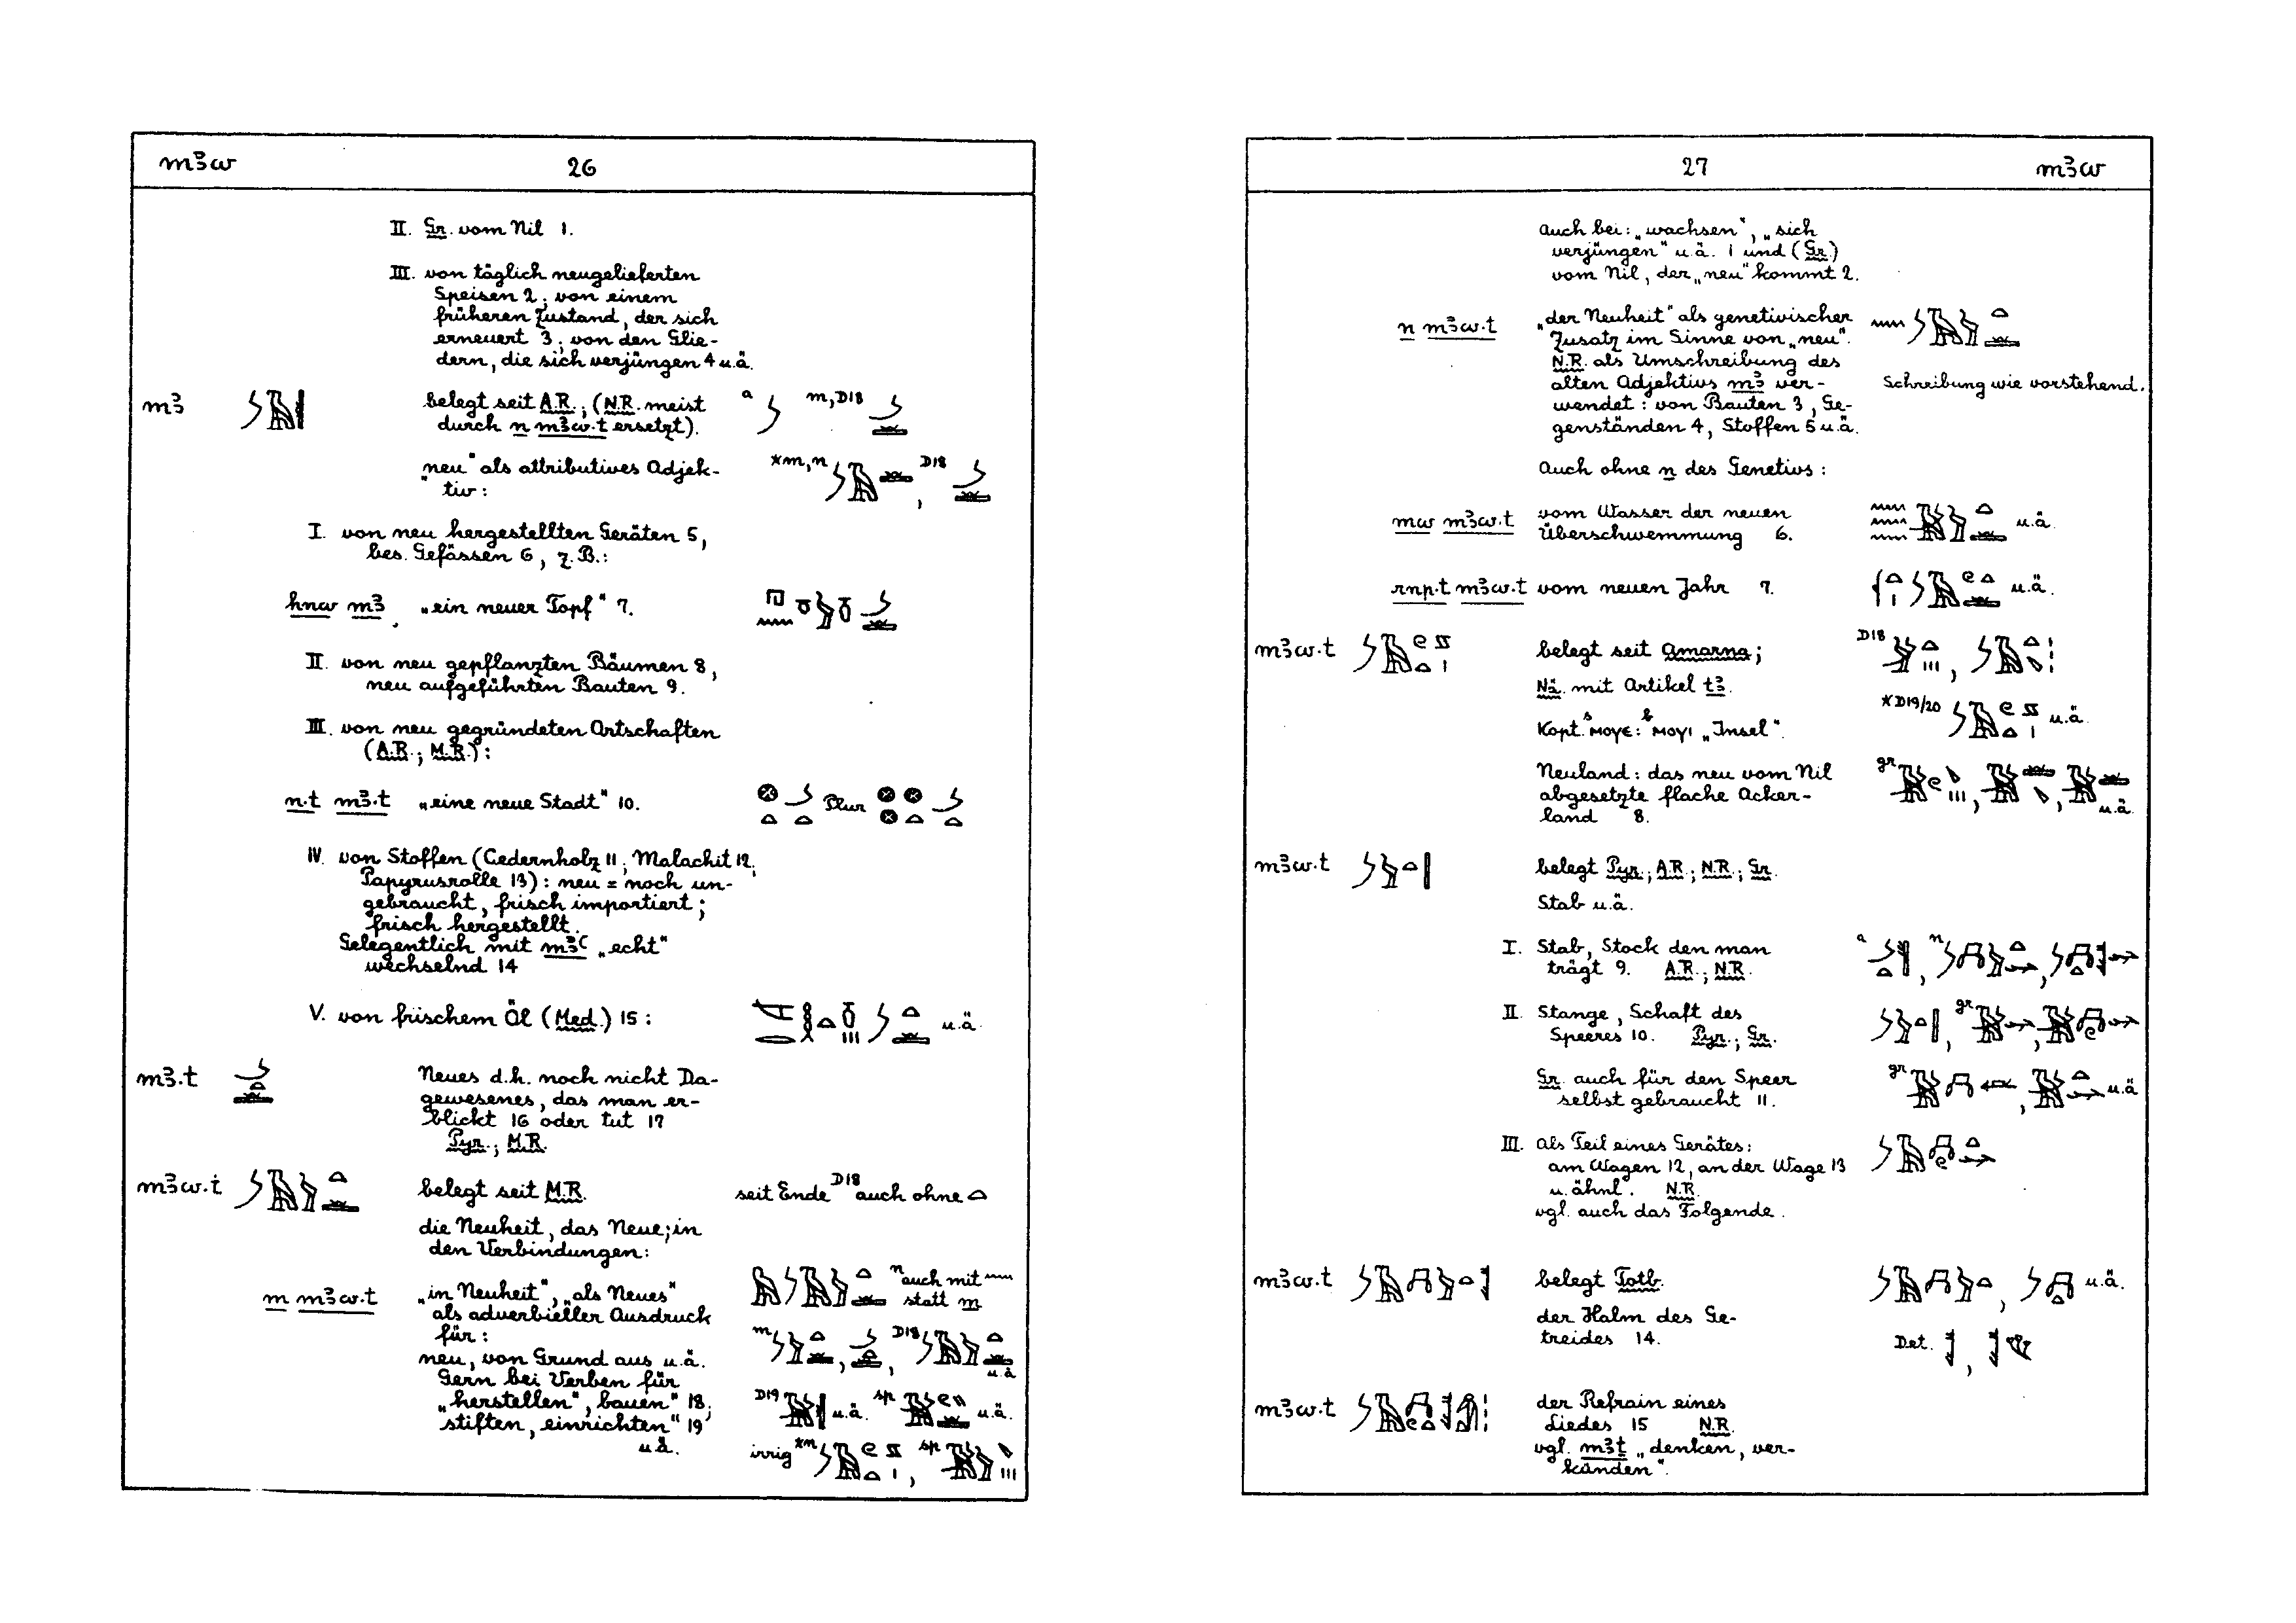 mꜣw 26
II. Gr. vom Nil 1.
III. von täglich neugelieferten
Speisen 2; von einem
früheren Zustand, der sich
erneuert 3; von den Glie-
dern, die sich verjüngen 4 u.ä.
mꜣ belegt seit A.R.; (N.R. meist a m, D18
durch n mꜣw.t ersetzt).
„neu" als attributives Adjek- *m,n D18
tiv:
I. von neu hergestellten Geräten 5,
bes. Gefässen 6, z.B.:
hnw mꜣ „ein neuer Topf" 7.
II. von neu gepflanzten Bäumen 8,
neu aufgeführten Bauten 9.
III. von neu gegründeten Ortschaften
(A.R.; M.R.):
n.t mꜣ.t „eine neue Stadt" 10. Plur
IV. von Stoffen (Cedernholz 11; Malachit 12;
Papyrusrolle 13): neu = noch un-
gebraucht, frisch importiert;
frisch hergestellt.
Gelegentlich mit mꜣꜥ „echt"
wechselnd 14
V. von frischem Öl (Med.) 15: u.ä.
mꜣ.t Neues d.h. noch nicht Da-
gewesenes, das man er-
blickt 16 oder tut 17
Pyr.; M.R.
mꜣw.t belegt seit M.R. seit Ende D18 auch ohne
die Neuheit, das Neue; in
den Verbindungen:
m mꜣw.t „in Neuheit", „als Neues" n auch mit
als adverbieller Ausdruck statt m
für: m D18
neu, von Grund aus u.ä. u.ä
Gern bei Verben für
„herstellen", bauen" 18; D19 u.ä. sp u.ä.
stiften, einrichten" 19
u.ä. irrig *n sp
27 mꜣw
Auch bei: „wachsen", „sich
verjüngen" u.ä. 1 und (Gr.)
vom Nil, der „neu" kommt 2.
n mꜣw.t „der Neuheit" als genetivischer
Zusatz im Sinne von „neu".
N.R. als Umschreibung des
alten Adjektivs mꜣ ver- Schreibung wie vorstehend.
wendet: von Bauten 3, Ge-
genständen 4, Stoffen 5 u.ä.
Auch ohne n des Genetivs:
mw mꜣw.t vom Wasser der neuen u.ä.
Überschwemmung 6.
rnp.t mꜣw.t vom neuen Jahr 7. u.ä.
mꜣw.t belegt seit Amarna; D18
Nä. mit Artikel tꜣ.
*D19/20 u.ä.
Kopt. s ⲙⲟⲩⲉ: b ⲙⲟⲩⲓ „Insel".
Neuland: das neu vom Nil gr
abgesetzte flache Acker-
land 8. u.ä.
mꜣw.t belegt Pyr.; A.R.; N.R.; Gr.
Stab u.ä.
I. Stab, Stock den man a n
trägt 9. A.R.; N.R.
II. Stange, Schaft des gr
Speeres 10. Pyr.; Gr.
Gr. auch für den Speer gr u.ä
selbst gebraucht 11.
III. als Teil eines Gerätes:
am Wagen 12, an der Wage 13
u. ähnl. N.R.
vgl. auch das Folgende.
mꜣw.t belegt Totb. u.ä.
der Halm des Ge-
treides 14. Det.
mꜣw.t der Refrain eines
Liedes 15 N.R.
vgl. mꜣṯ „denken, ver-
künden".